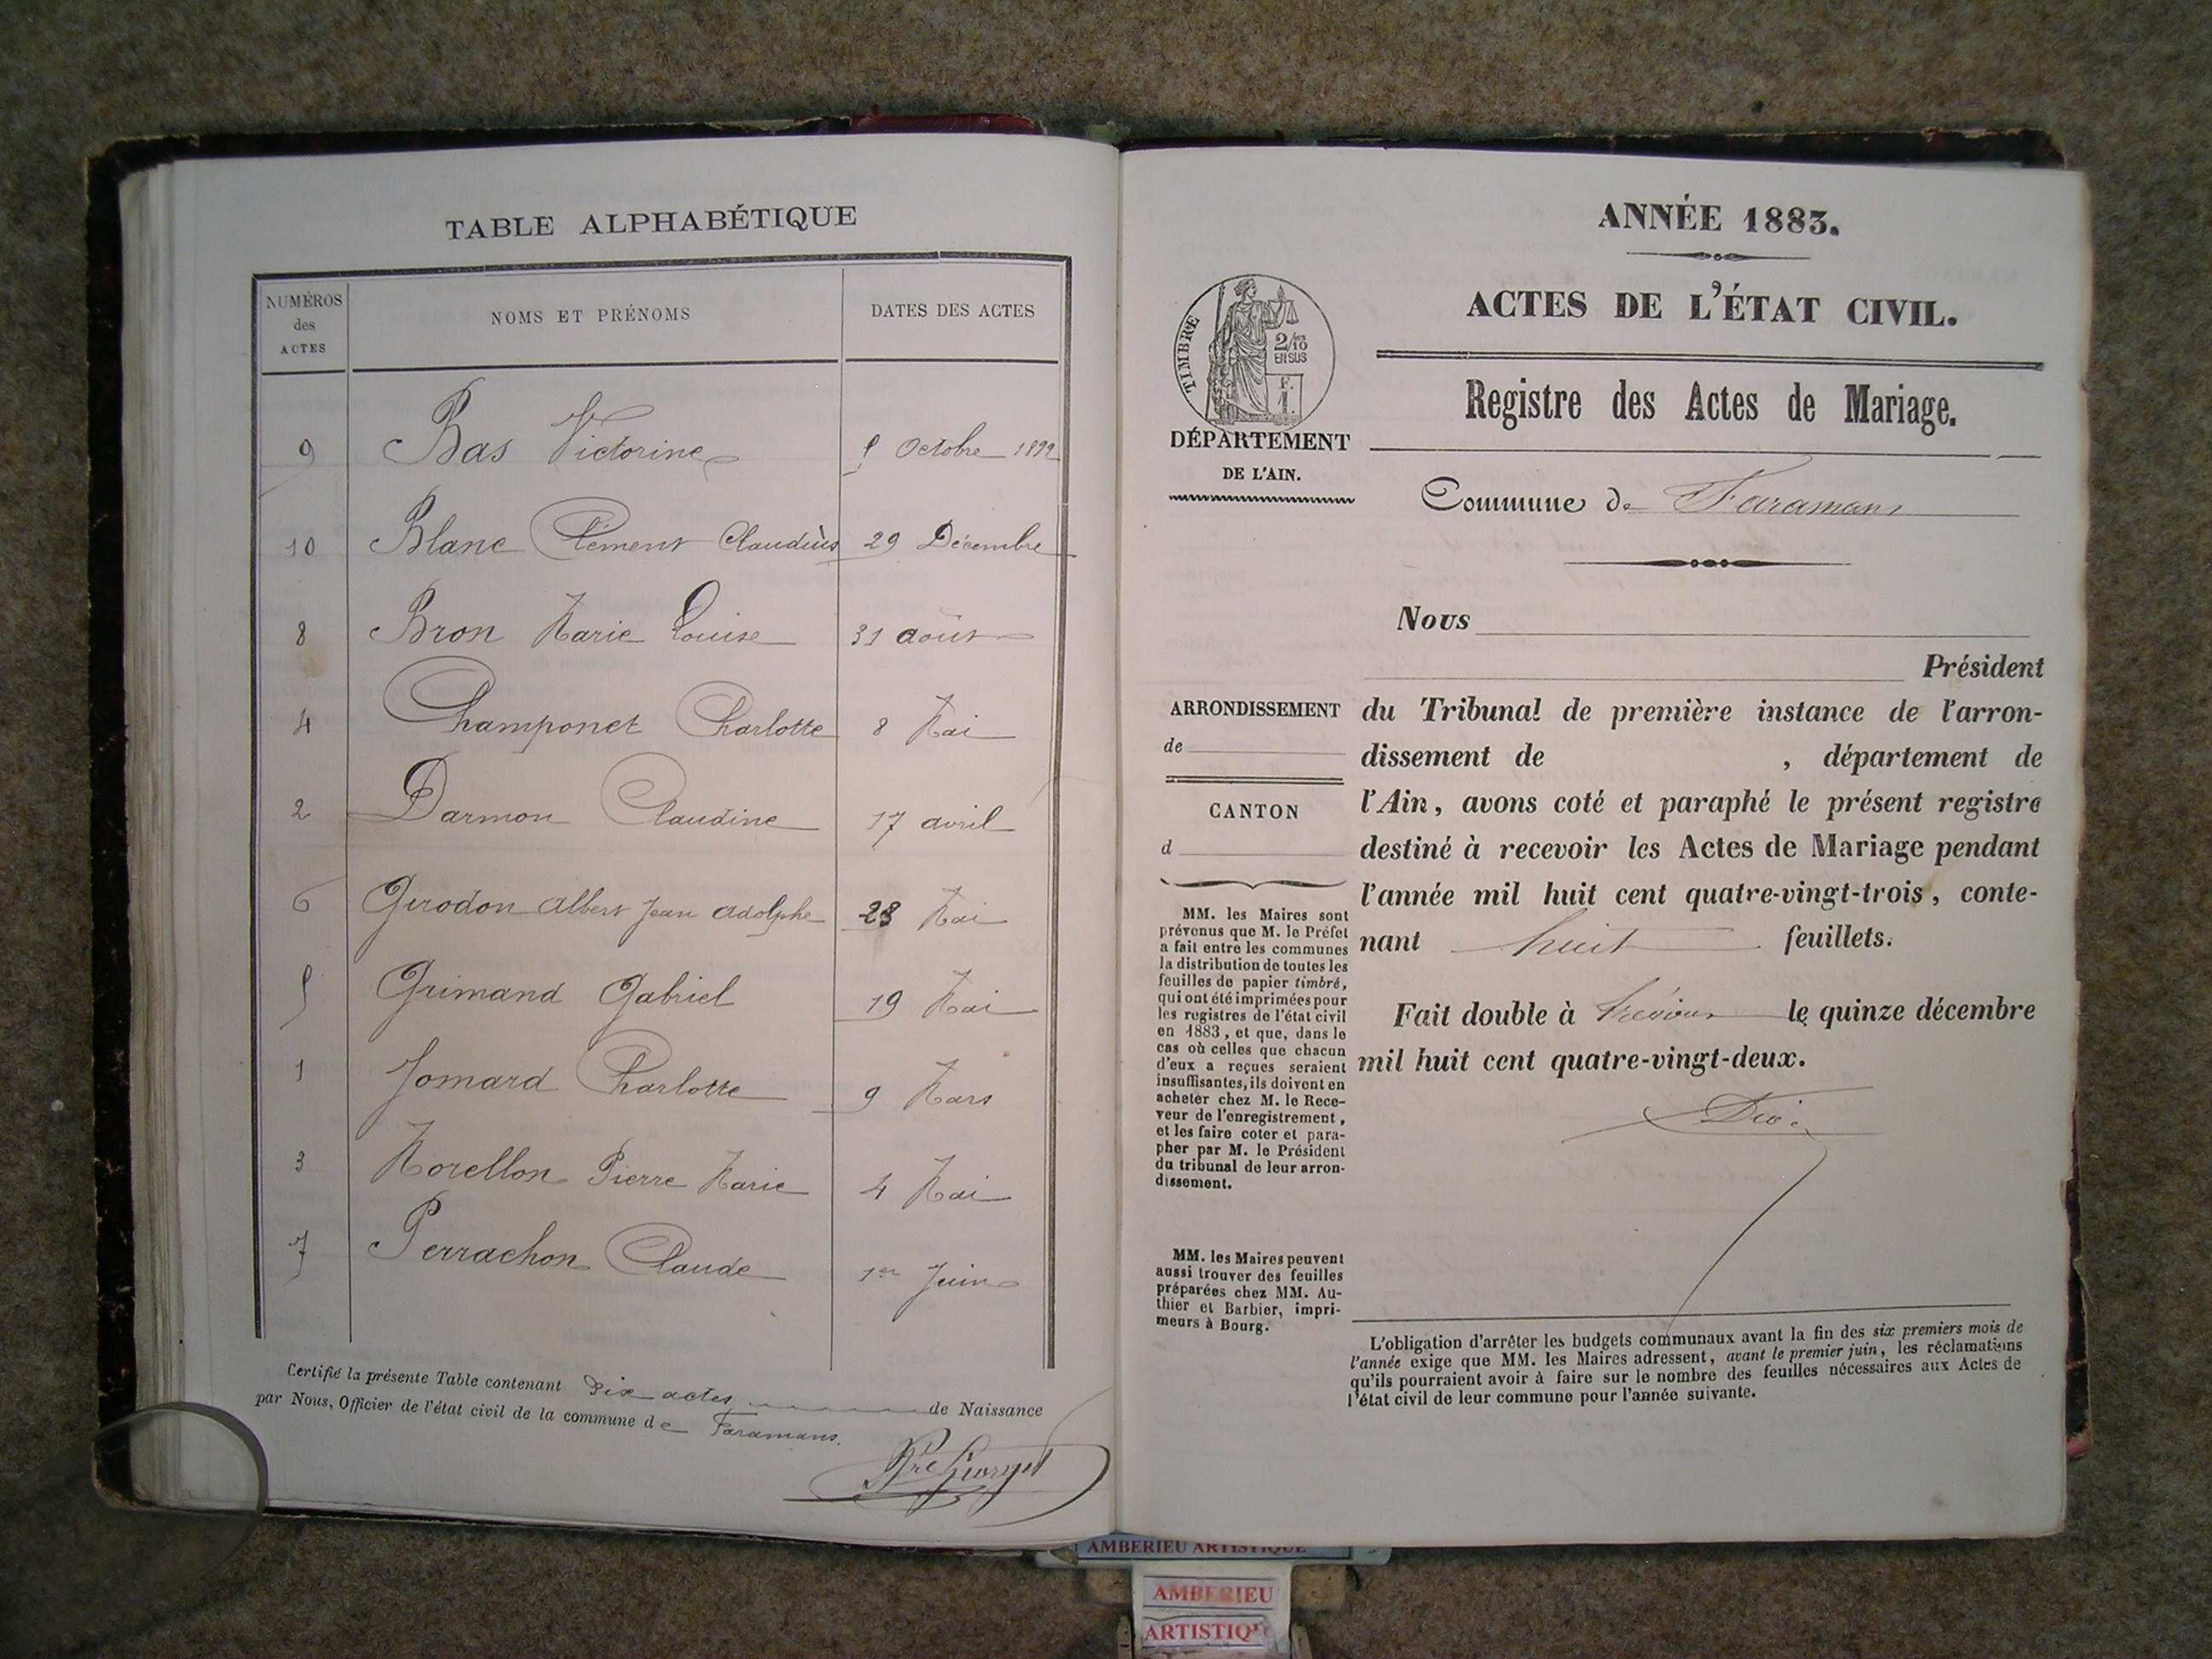 TABLE ALPHABÉTIQUE
NUMÉROS
des
ACTES
NOMS ET PRÉNOMS
DATES DES ACTES
9 Bas Victorine Octobre
10 Blanc Clément Claudius 29 Décembre
8 Bron Marie Louise 31 août
4 Champonet Charlotte 8 Mai
2 Darmon Claudine 17 avril
6 Girodon Albert Jean Adolphe 28 Mai
5 Grimand Gabriel 19 Mai
1 Jomard Charlotte 9 Mars
3 Morellon Pierre Marie 4 Mai
7 Perrachon Claude 1er Juin
Certifié la présente Table contenant dix actes de Naissance
par Nous, Officier de l'état civil de la commune de Faramans.
ANNÉE 1883.
ACTES DE L'ÉTAT CIVIL.
Registre des Actes de Mariage.
TIMBRE
2/10
EN SUS
F.
1.
DÉPARTEMENT
DE L'AIN.
Commune de Faramans
Nous
Président
du Tribunal de première instance de l'arron-
dissement de , département de
l'Ain, avons coté et paraphé le présent registre
destiné à recevoir les Actes de Mariage pendant
l'année mil huit cent quatre-vingt-trois, conte-
nant huit feuillets.
Fait double à Trévoux le quinze décembre
mil huit cent quatre-vingt-deux.
ARRONDISSEMENT
de
CANTON
d
MM. les Maires sont
prévenus que M. le Préfet
a fait entre les communes
la distribution de toutes les
feuilles de papier timbré,
qui ont été imprimées pour
les registres de l'état civil
en 1883, et que, dans le
cas où celles que chacun
d'eux a reçues seraient
insuffisantes, ils doivent en
acheter chez M. le Rece-
veur de l'enregistrement,
et les faire coter et para-
pher par M. le Président
du tribunal de leur arron-
dissement.
MM. les Maires peuvent
aussi trouver des feuilles
préparées chez MM. Au-
thier et Barbier, impri-
meurs à Bourg.
L'obligation d'arrêter les budgets communaux avant la fin des six premiers mois de
l'année exige que MM. les Maires adressent, avant le premier juin, les réclamations
qu'ils pourraient avoir à faire sur le nombre des feuilles nécessaires aux Actes de
l'état civil de leur commune pour l'année suivante.
AMBERIEU ARTISTIQUE
AMBERIEU
ARTISTIQUE